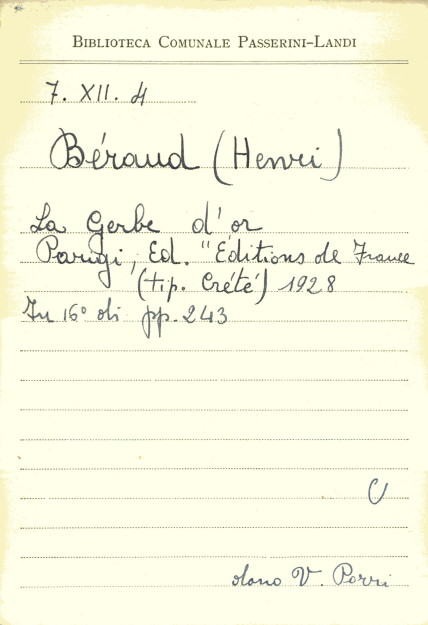 BIBLIOTECA COMUNALE PASSERINI-LANDI
7. XII. 4
Béraud (Henri)
La Gerbe d'or
Parigi, Ed. "Éditions de France
(tip. Crété) 1928
In 16° di pp. 243
C
dono V. Porri